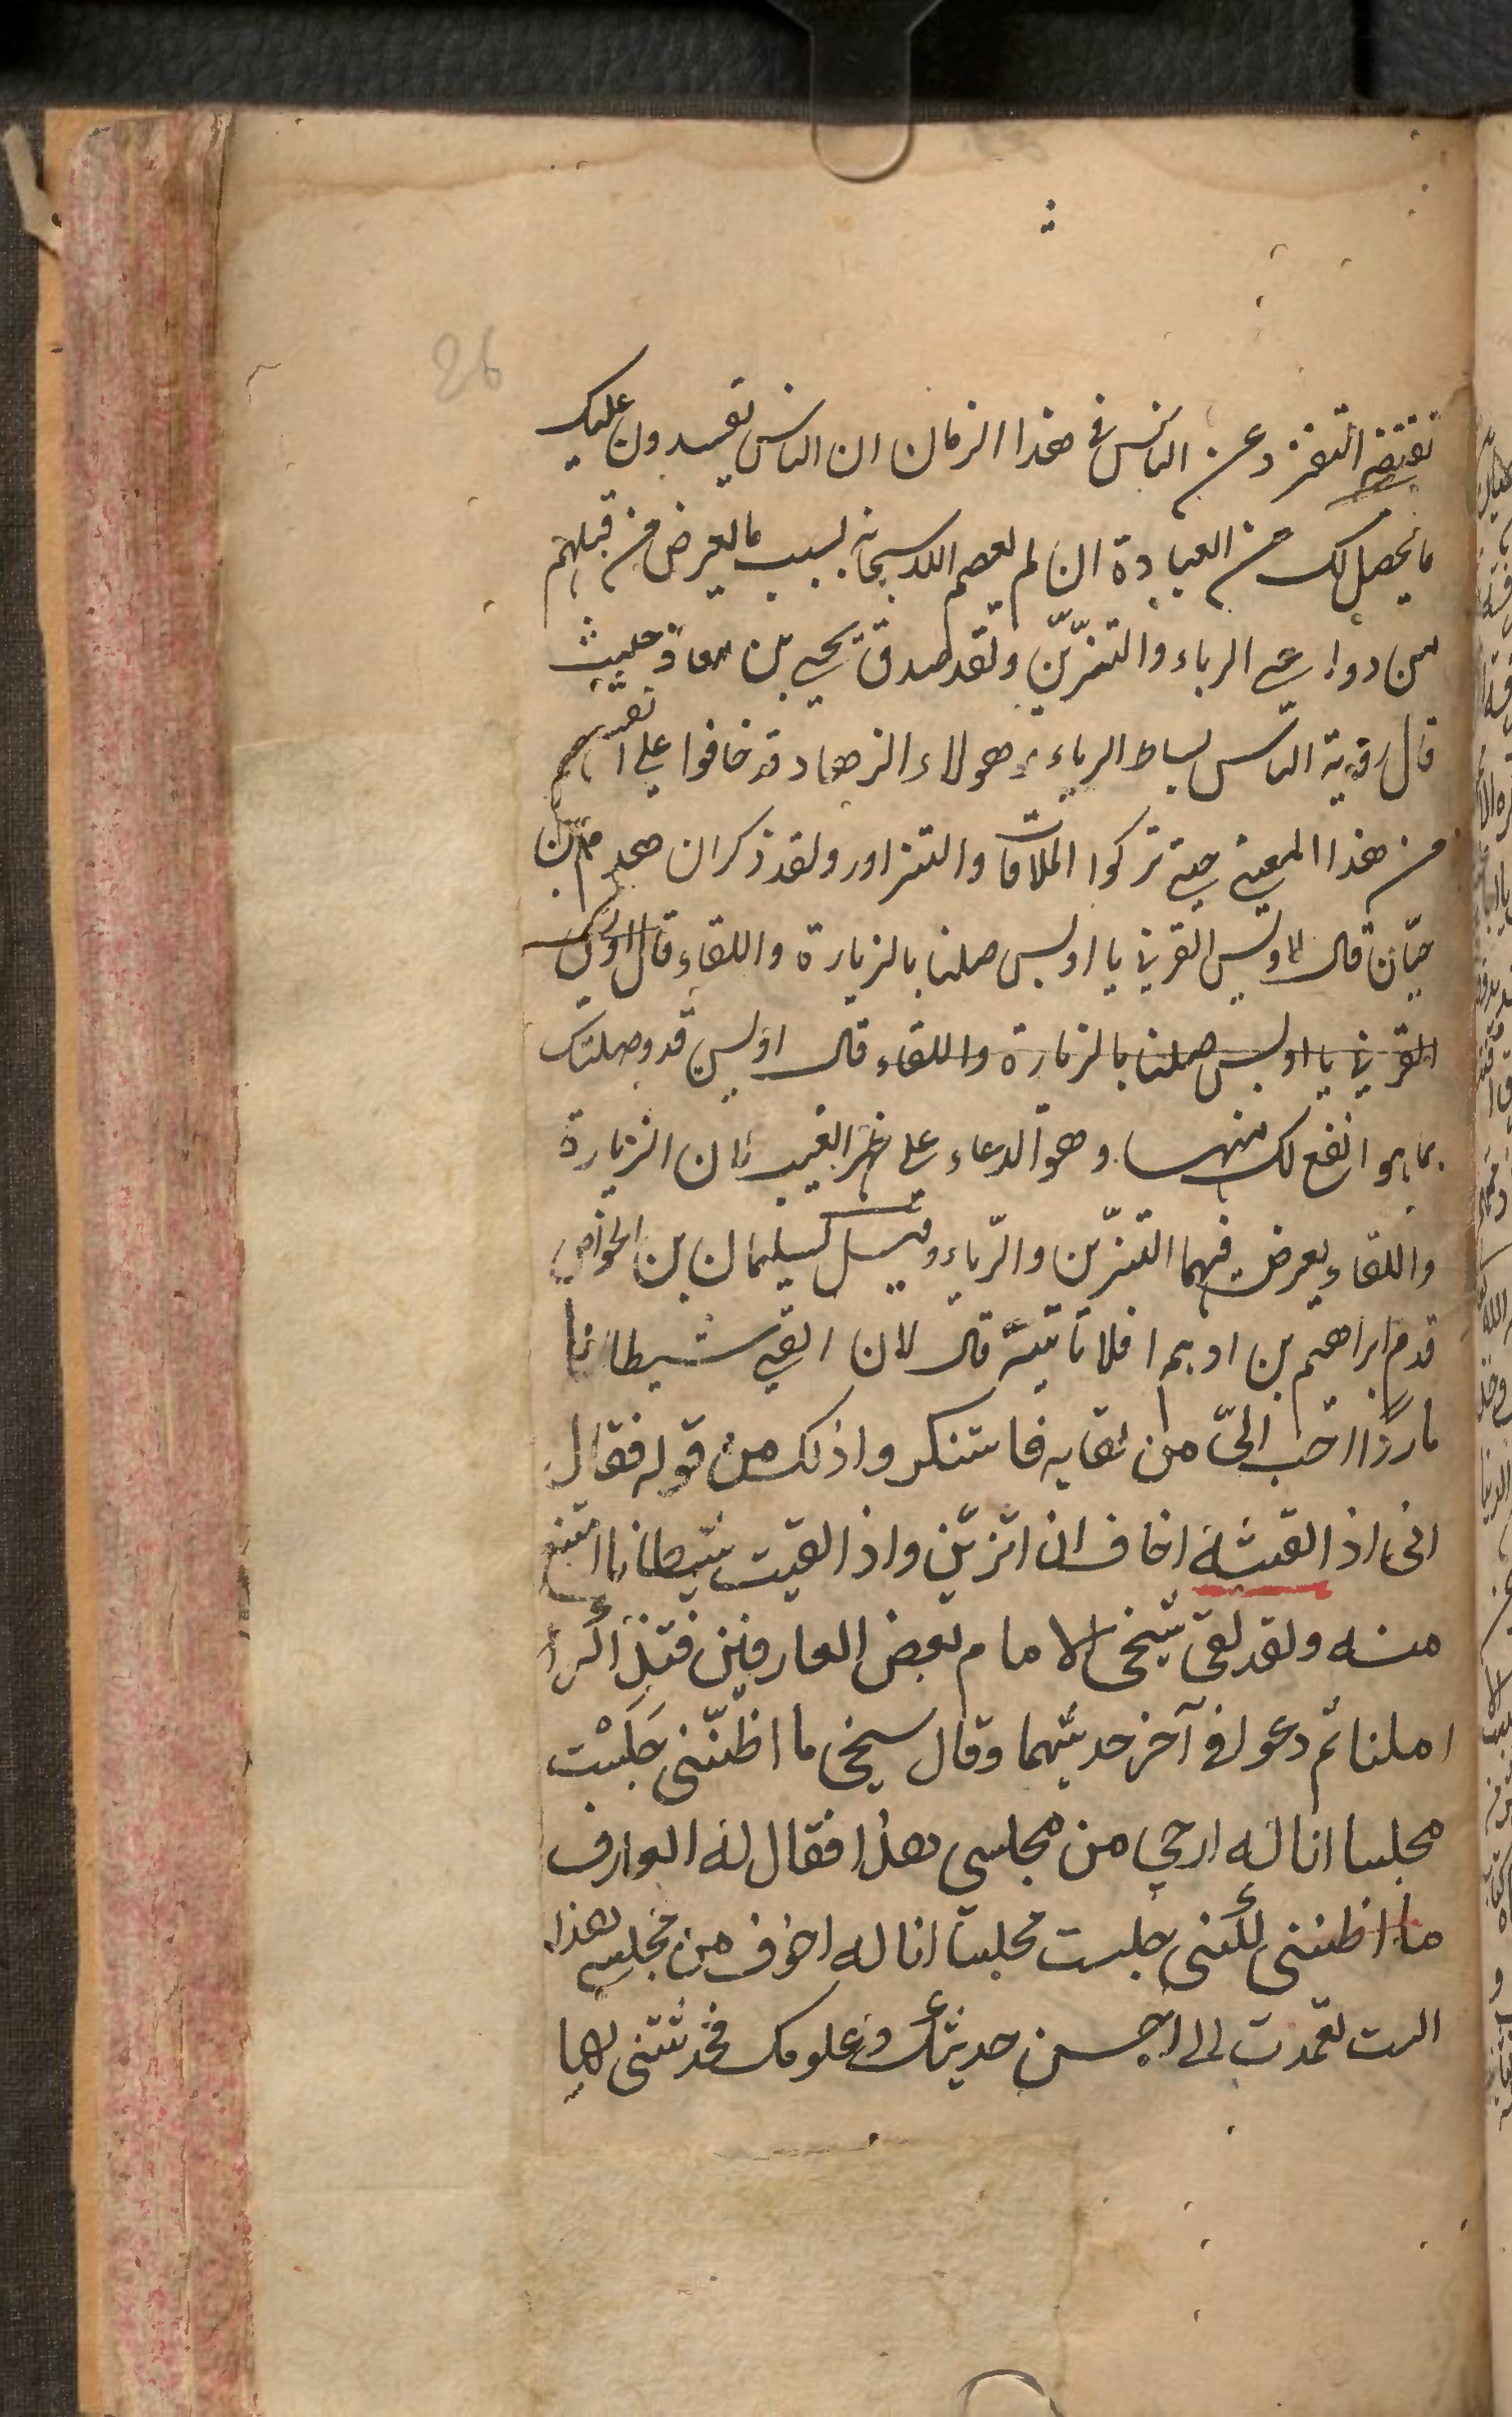 26
تقتضے التفرد عن الناس فی هذا الزمان ان الناس یفسدون علیک
ما یحصل لک من العبادة ان لم یعصم اللہ سبحانہ بسبب ما یعرض من قبلهم
من دواعے الریاء والتزیّن ولقد صدق یحیے بن معاذ حیث
قال رؤیة الناس بساط الریاء وهولاء الزهاد قد خافوا علی انفسهم
من هذا المعنے حتے ترکوا الملاقات والتزاور ولقد ذکر ان هرم بن
حیّان قال لاویس القرنے یا اویس صلنا بالزیارة واللقاء قال اویس
القرنے یا اویس صلنا بالزیارة واللقاء قال اویس قد وصلتک
بما هو انفع لک منهما وهو الدعاء علی ظهر الغیب لان الزیارة
واللقاء یعرض فیهما التزیّن والرّیاء وقیل لسلیمان بن الخواص
قدم ابراهیم بن ادهم افلا تاتیہ قال لان القی شیطانا
ماردا احب الیّ من لقایه فاستنکروا ذلک من قوله فقال
انی اذ القیته اخاف ان اتزیّن واذ القیت شیطانا امتنع
منه ولقد لقی شیخی الامام بعض العارفین فتذاکرا
املنا ثم دعوا فی آخر حدیثهما وقال شیخی ما اظنّنی جَلَسْت
مجلسا انا له ارجی من مجلسی هذا فقال له العارف
ما اظننی لکنی جلست مجلسا انا له اخوف من مجلسی هذا
الست تعمدت الی احسن حدیثک وعلومک فحدثتنی بها